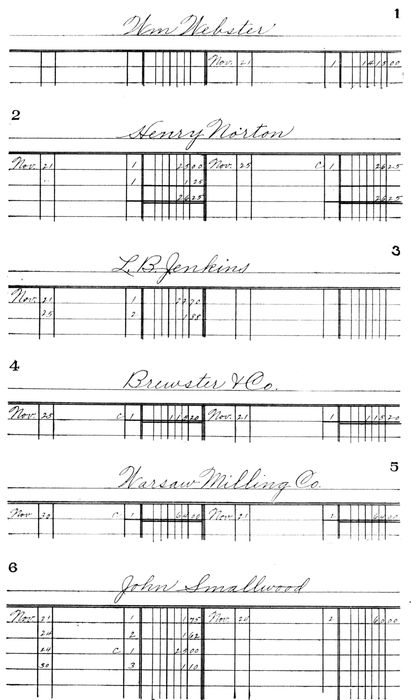 1
Wm Webster
Nov. 21 1 1415.00
2
Henry Norton
Nov. 21 1 25.00 Nov. 25 C. 1 26.25
" 1 1.25
26.25 26.25
3
L. B. Jenkins
Nov. 21 1
25 2 1.88
4
Brewster & Co.
Nov. 25 C 1 115.20 Nov. 21 1 115.20
5
Warsaw Milling Co.
Nov. 30 C 1 64.00 Nov. 21 1 64.00
6
John Smallwood
Nov. 21 1 1.75 Nov. 24 2 60.00
24 2 1.62
24 C. 1 25.00
30 3 1.10